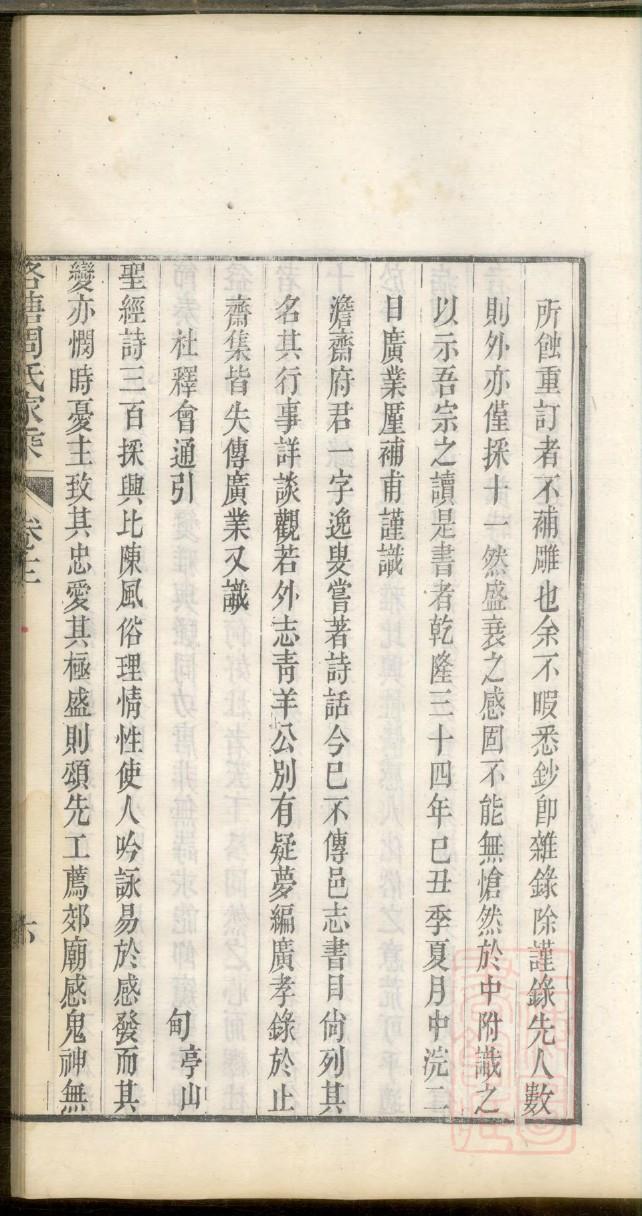 所蝕重訂者不補雕也余不暇悉鈔卽雜錄除謹錄先人數
則外亦僅採十一然盛衰之感固不能無愴然於中附識之
以示吾宗之讀是書者乾隆三十四年己丑季夏月中浣二
日廣業厪補甫謹識
澹齋府君一字逸叟嘗著詩話今已不傳邑志書目尙列其
名其行事詳談觀若外志靑羊公別有疑夢編廣孝錄於止
齋集皆失傳廣業又識
杜釋會通引 甸亭山
聖經詩三百採興比陳風俗理情性使人吟詠易於感發而其
變亦憫時憂主致其忠愛其極盛則頌先工薦郊廟感鬼神無
洛塘周氏家乘 卷 六